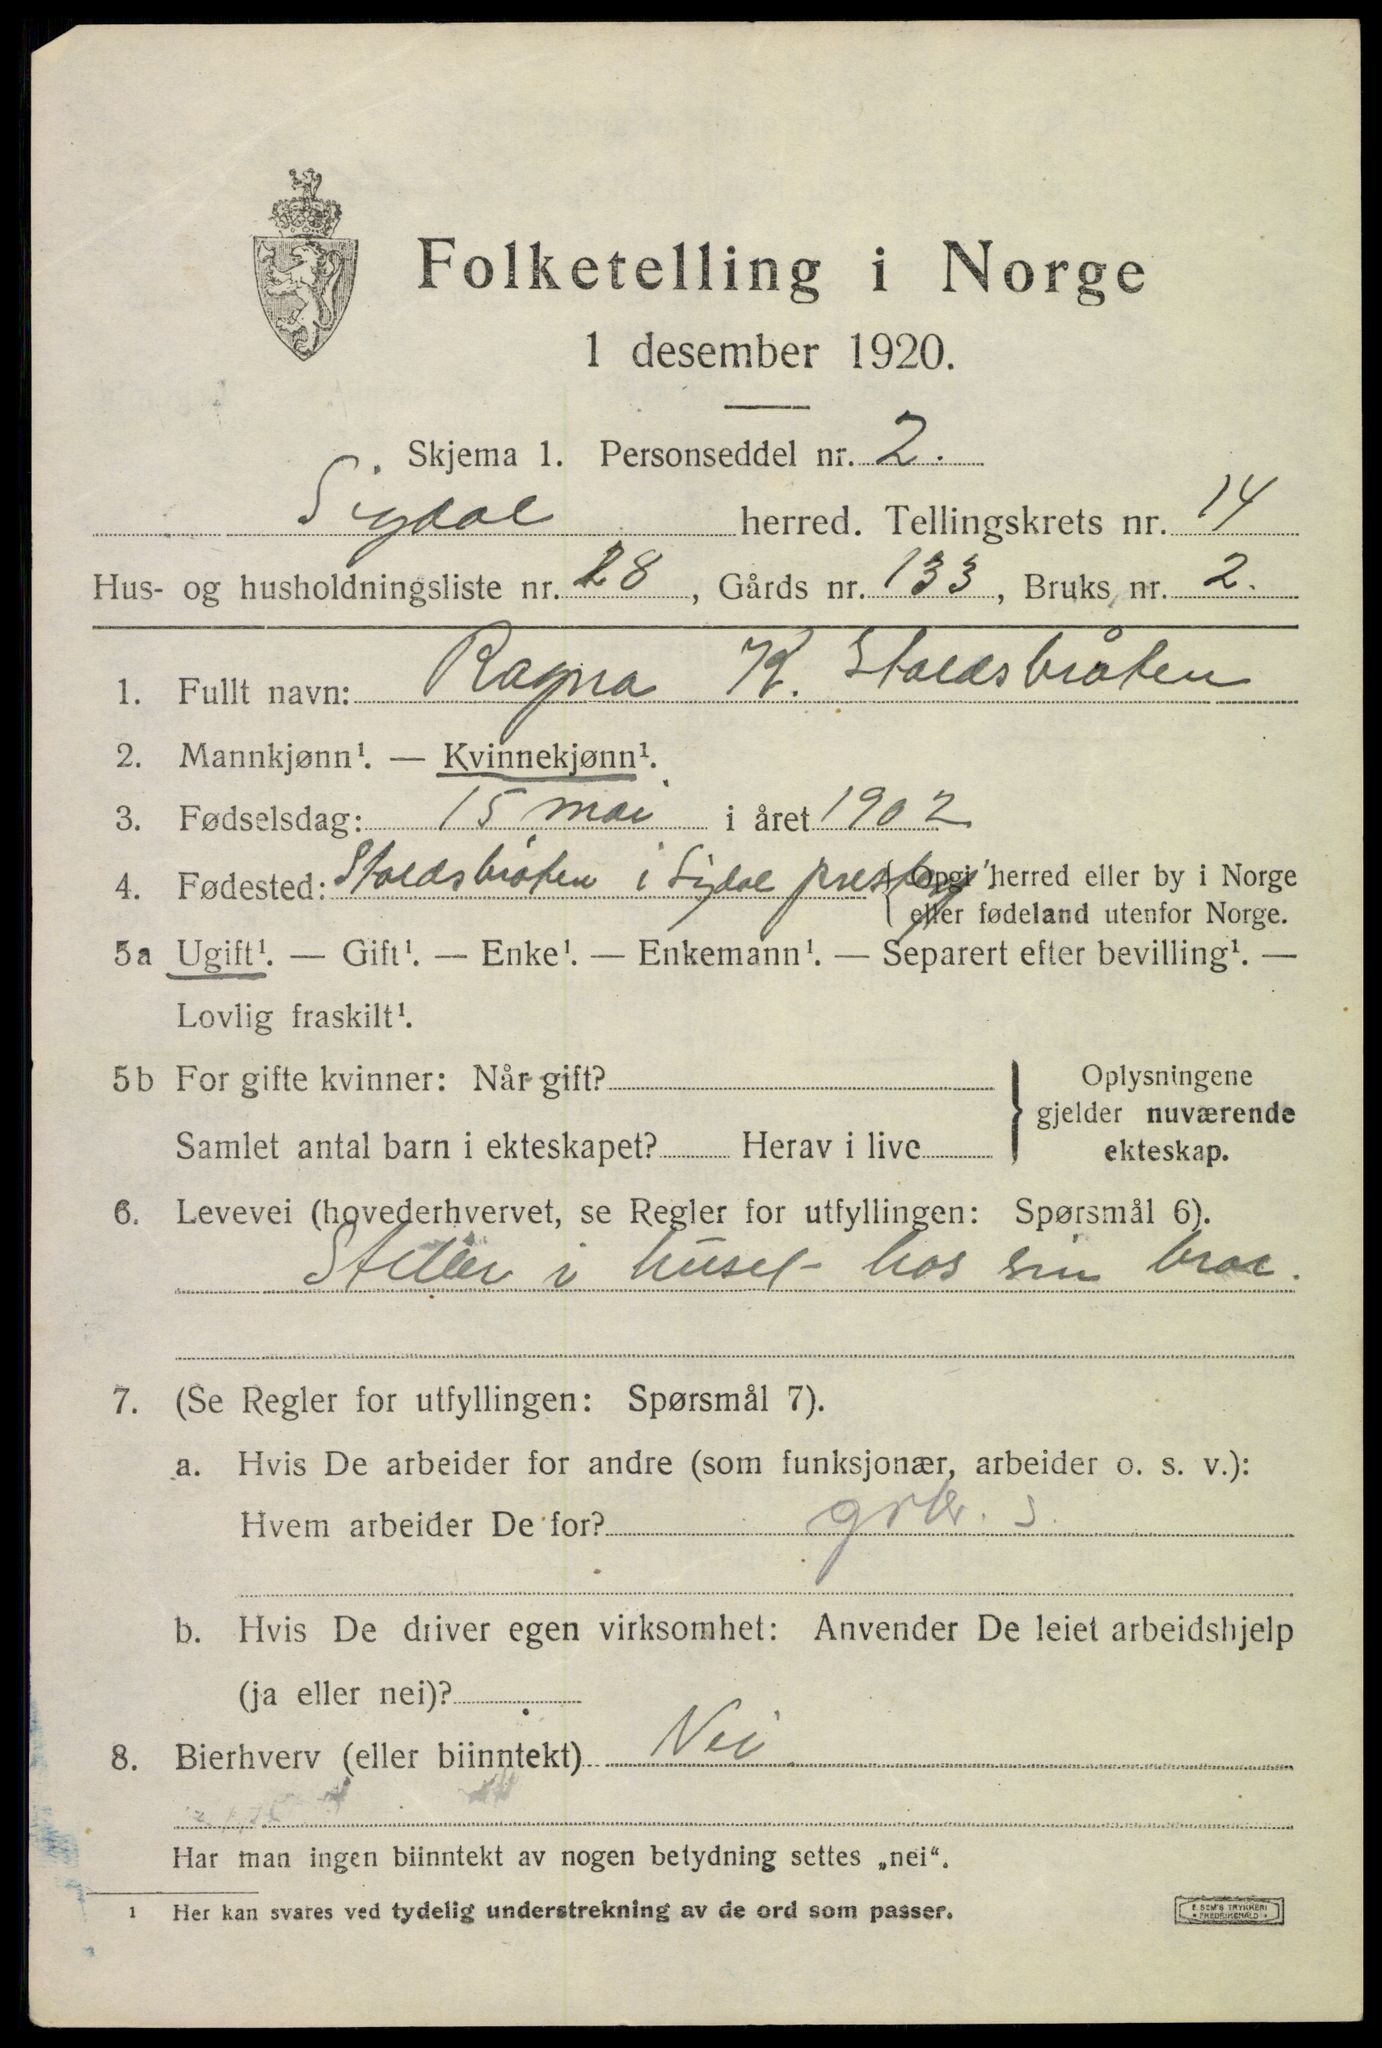 Folketelling i Norge
1 desember 1920.
Skjema 1. Personseddel nr. 2.
Sigdal herred. Tellingskrets nr. 14
Hus- og husholdningsliste nr. 28, Gårds nr. 133, Bruks nr. 2.
1. Fullt navn: Ragna K. Staldsbråten
2. Mannkjønn¹. — Kvinnekjønn¹.
3. Fødselsdag: 15 mai i året 1902
4. Fødested: Staldsbråten i Sigdal prestegj. Opgi herred eller by i Norge
eller fødeland utenfor Norge.
5a Ugift¹. — Gift¹. — Enke¹. — Enkemann¹. — Separert efter bevilling¹. —
Lovlig fraskilt¹.
5b For gifte kvinner: Når gift?
Samlet antal barn i ekteskapet? Herav i live
Oplysningene
gjelder nuværende
ekteskap.
6. Levevei (hovederhvervet, se Regler for utfyllingen: Spørsmål 6).
Steller i huset hos sin bror.
7. (Se Regler for utfyllingen: Spørsmål 7).
a. Hvis De arbeider for andre (som funksjonær, arbeider o. s. v.):
Hvem arbeider De for?
b. Hvis De driver egen virksomhet: Anvender De leiet arbeidshjelp
(ja eller nei)?
8. Bierhverv (eller biinntekt) Nei
Har man ingen biinntekt av nogen betydning settes „nei“.
¹ Her kan svares ved tydelig understrekning av de ord som passer.
E. SEM'S TRYKKERI
FREDRIKSHALD